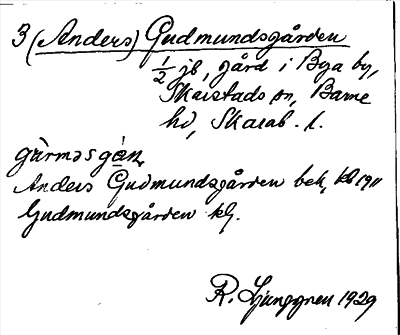 3 (Anders) Gudmundsgården
1/2 jb, gård i Bya by,
Skarstads sn, Barne
hd, Skarab. l.
gàrməsgàn
Anders Gudmundsgården bek, kb 1911
Gudmundsgården kg.
R. Ljunggren 1929